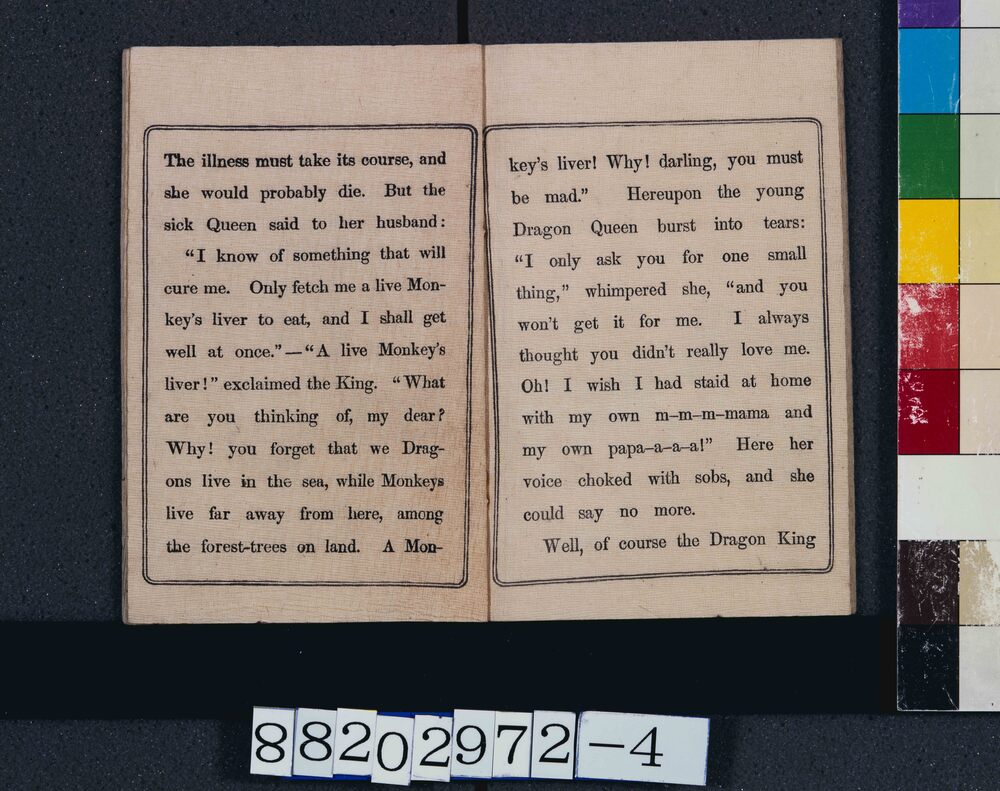 The illness must take its course, and
she would probably die. But the
sick Queen said to her husband:
“I know of something that will
cure me. Only fetch me a live Mon-
key’s liver to eat, and I shall get
well at once.”—“A live Monkey’s
liver!” exclaimed the King. “What
are you thinking of, my dear?
Why! you forget that we Drag-
ons live in the sea, while Monkeys
live far away from here, among
the forest-trees on land. A Mon-
key’s liver! Why! darling, you must
be mad.” Hereupon the young
Dragon Queen burst into tears:
“I only ask you for one small
thing,” whimpered she, “and you
won’t get it for me. I always
thought you didn’t really love me.
Oh! I wish I had staid at home
with my own m–m–m–mama and
my own papa–a–a–a!” Here her
voice choked with sobs, and she
could say no more.
Well, of course the Dragon King
88202972-4